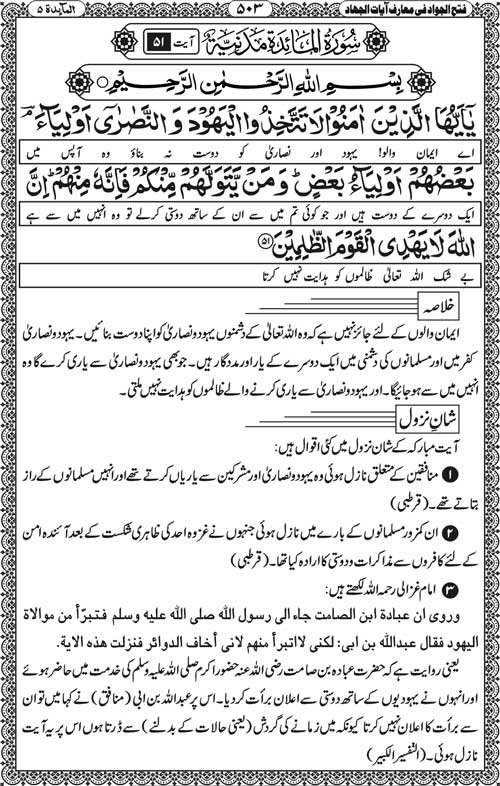 فتح الجواد فی معارف آیات الجهاد
۵۰۳
المائدة ۵
سُورَةُ الْمَائِدَةِ مَدَنِيَّةٌ
آیت ۵۱
بِسْمِ اللهِ الرَّحْمٰنِ الرَّحِيْمِ
يٰۤاَيُّهَا الَّذِيْنَ اٰمَنُوْا لَا تَتَّخِذُوا الْيَهُوْدَ وَ النَّصٰرٰۤى اَوْلِيَآءَ ۘ
اے ایمان والو! یہود اور نصاریٰ کو دوست نہ بناؤ وہ آپس میں
بَعْضُهُمْ اَوْلِيَآءُ بَعْضٍ ؕ وَ مَنْ يَّتَوَلَّهُمْ مِّنْكُمْ فَاِنَّهٗ مِنْهُمْ ؕ اِنَّ
ایک دوسرے کے دوست ہیں اور جو کوئی تم میں سے ان کے ساتھ دوستی کرلے تو وہ انہیں میں سے ہے
اللّٰهَ لَا يَهْدِى الْقَوْمَ الظّٰلِمِيْنَ ۵۱
بے شک اللہ تعالیٰ ظالموں کو ہدایت نہیں کرتا
خلاصہ
ایمان والوں کے لئے جائز نہیں ہے کہ وہ اللہ تعالیٰ کے دشمنوں یہود و نصاریٰ کو اپنا دوست بنائیں۔ یہود و نصاریٰ
کفر میں اور مسلمانوں کی دشمنی میں ایک دوسرے کے یار اور مددگار ہیں۔ جو بھی یہود و نصاریٰ سے یاری کرے گا وہ
انہیں میں سے ہو جائیگا۔ اور یہود و نصاریٰ سے یاری کرنے والے ظالموں کو ہدایت نہیں ملتی۔
شانِ نزول
آیت مبارکہ کے شان نزول میں کئی اقوال ہیں:
۱ منافقین کے متعلق نازل ہوئی وہ یہود و نصاریٰ اور مشرکین سے یاریاں کرتے تھے اور انہیں مسلمانوں کے راز
بتاتے تھے۔ (قرطبی)
۲ ان کمزور مسلمانوں کے بارے میں نازل ہوئی جنہوں نے غزوہ احد کی ظاہری شکست کے بعد آئندہ امن
کے لئے کافروں سے مذاکرات و دوستی کا ارادہ کیا تھا۔ (قرطبی)
۳ امام غزالی رحمہ اللہ لکھتے ہیں:
وروی ان عبادة ابن الصامت جاء الی رسول الله صلی الله علیه وسلم فتبرّأ من موالاة
الیهود فقال عبدالله بن ابی: لکنی لااتبرأ منهم لانی أخاف الدوائر فنزلت هذه الایة.
یعنی روایت ہے کہ حضرت عبادہ بن صامت رضی اللہ عنہ حضور اکرم صلی اللہ علیہ وسلم کی خدمت میں حاضر ہوئے
اور انہوں نے یہودیوں کے ساتھ دوستی سے اعلان برأت کر دیا۔ اس پر عبداللہ بن ابی (منافق) نے کہا میں تو ان
سے برأت کا اعلان نہیں کرتا کیونکہ میں زمانے کی گردش (یعنی حالات کے بدلنے) سے ڈرتا ہوں اس پر یہ آیت
نازل ہوئی۔ (التفسیر الکبیر)